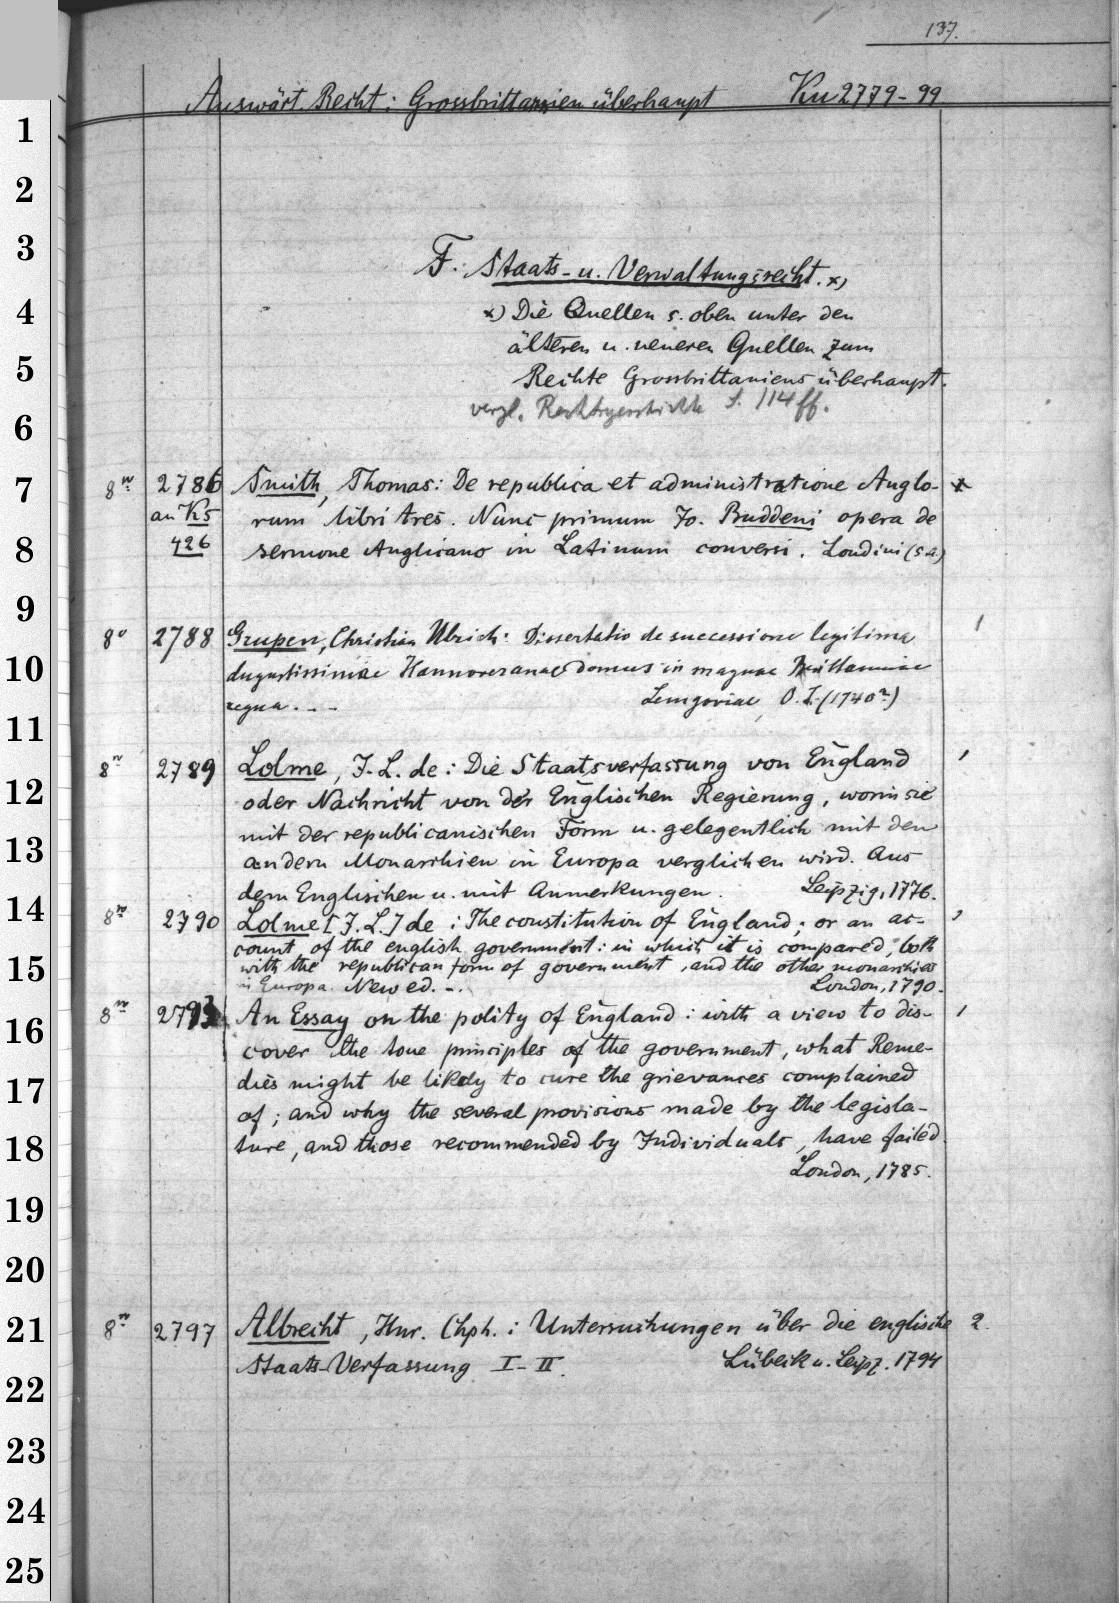 137.
Auswärt. Recht: Grossbrittannien überhaupt Ku 2779-99
F. Staats- u. Verwaltungsrecht. x)
x) Die Quellen s. oben unter den
älteren u. neueren Quellen zum
Rechte Grossbrittaniens überhaupt.
vergl. Rechtsgeschichte S. 114 ff.
8° 2786 Smith, Thomas: De republica et administratione Anglo- x
an K5 rum libri tres. Nunc primum Jo. Buddeni opera de
426 sermone Anglicano in Latinum conversi. Londini (s a)
8° 2788 Grupen, Christian Ulrich: Dissertatio de successione legitima 1
augustissimae Hannoveranae domus in magnae Brittanniae
regna. - - Lemgoviae, O. J. (1740?)
8° 2789 Lolme, J. L. de: Die Staatsverfassung von England 1
oder Nachricht von der Englischen Regierung, worin sie
mit der republicanischen Form u. gelegentlich mit den
andern Monarchien in Europa verglichen wird. Aus
dem Englischen u. mit Anmerkungen. Leipzig, 1776.
8° 2790 Lolme [J. L.] de: The constitution of England; or an ac- 1
count of the english government: in which it is compared, both
with the republican form of government, and the other monarchies
in Europa. New ed. -. London, 1790.
8° 2793 An Essay on the polity of England: with a view to dis- 1
cover the true principles of the government, what Reme-
dies might be likely to cure the grievances complained
of; and why the several provisions made by the legisla-
ture, and those recommended by Individuals, have failed.
London, 1785.
8° 2797 Albrecht, Hnr. Chph.: Untersuchungen über die englische 2.
Staats-Verfassung I-II. Lübeck u. Leipz. 1794
1
2
3
4
5
6
7
8
9
10
11
12
13
14
15
16
17
18
19
20
21
22
23
24
25